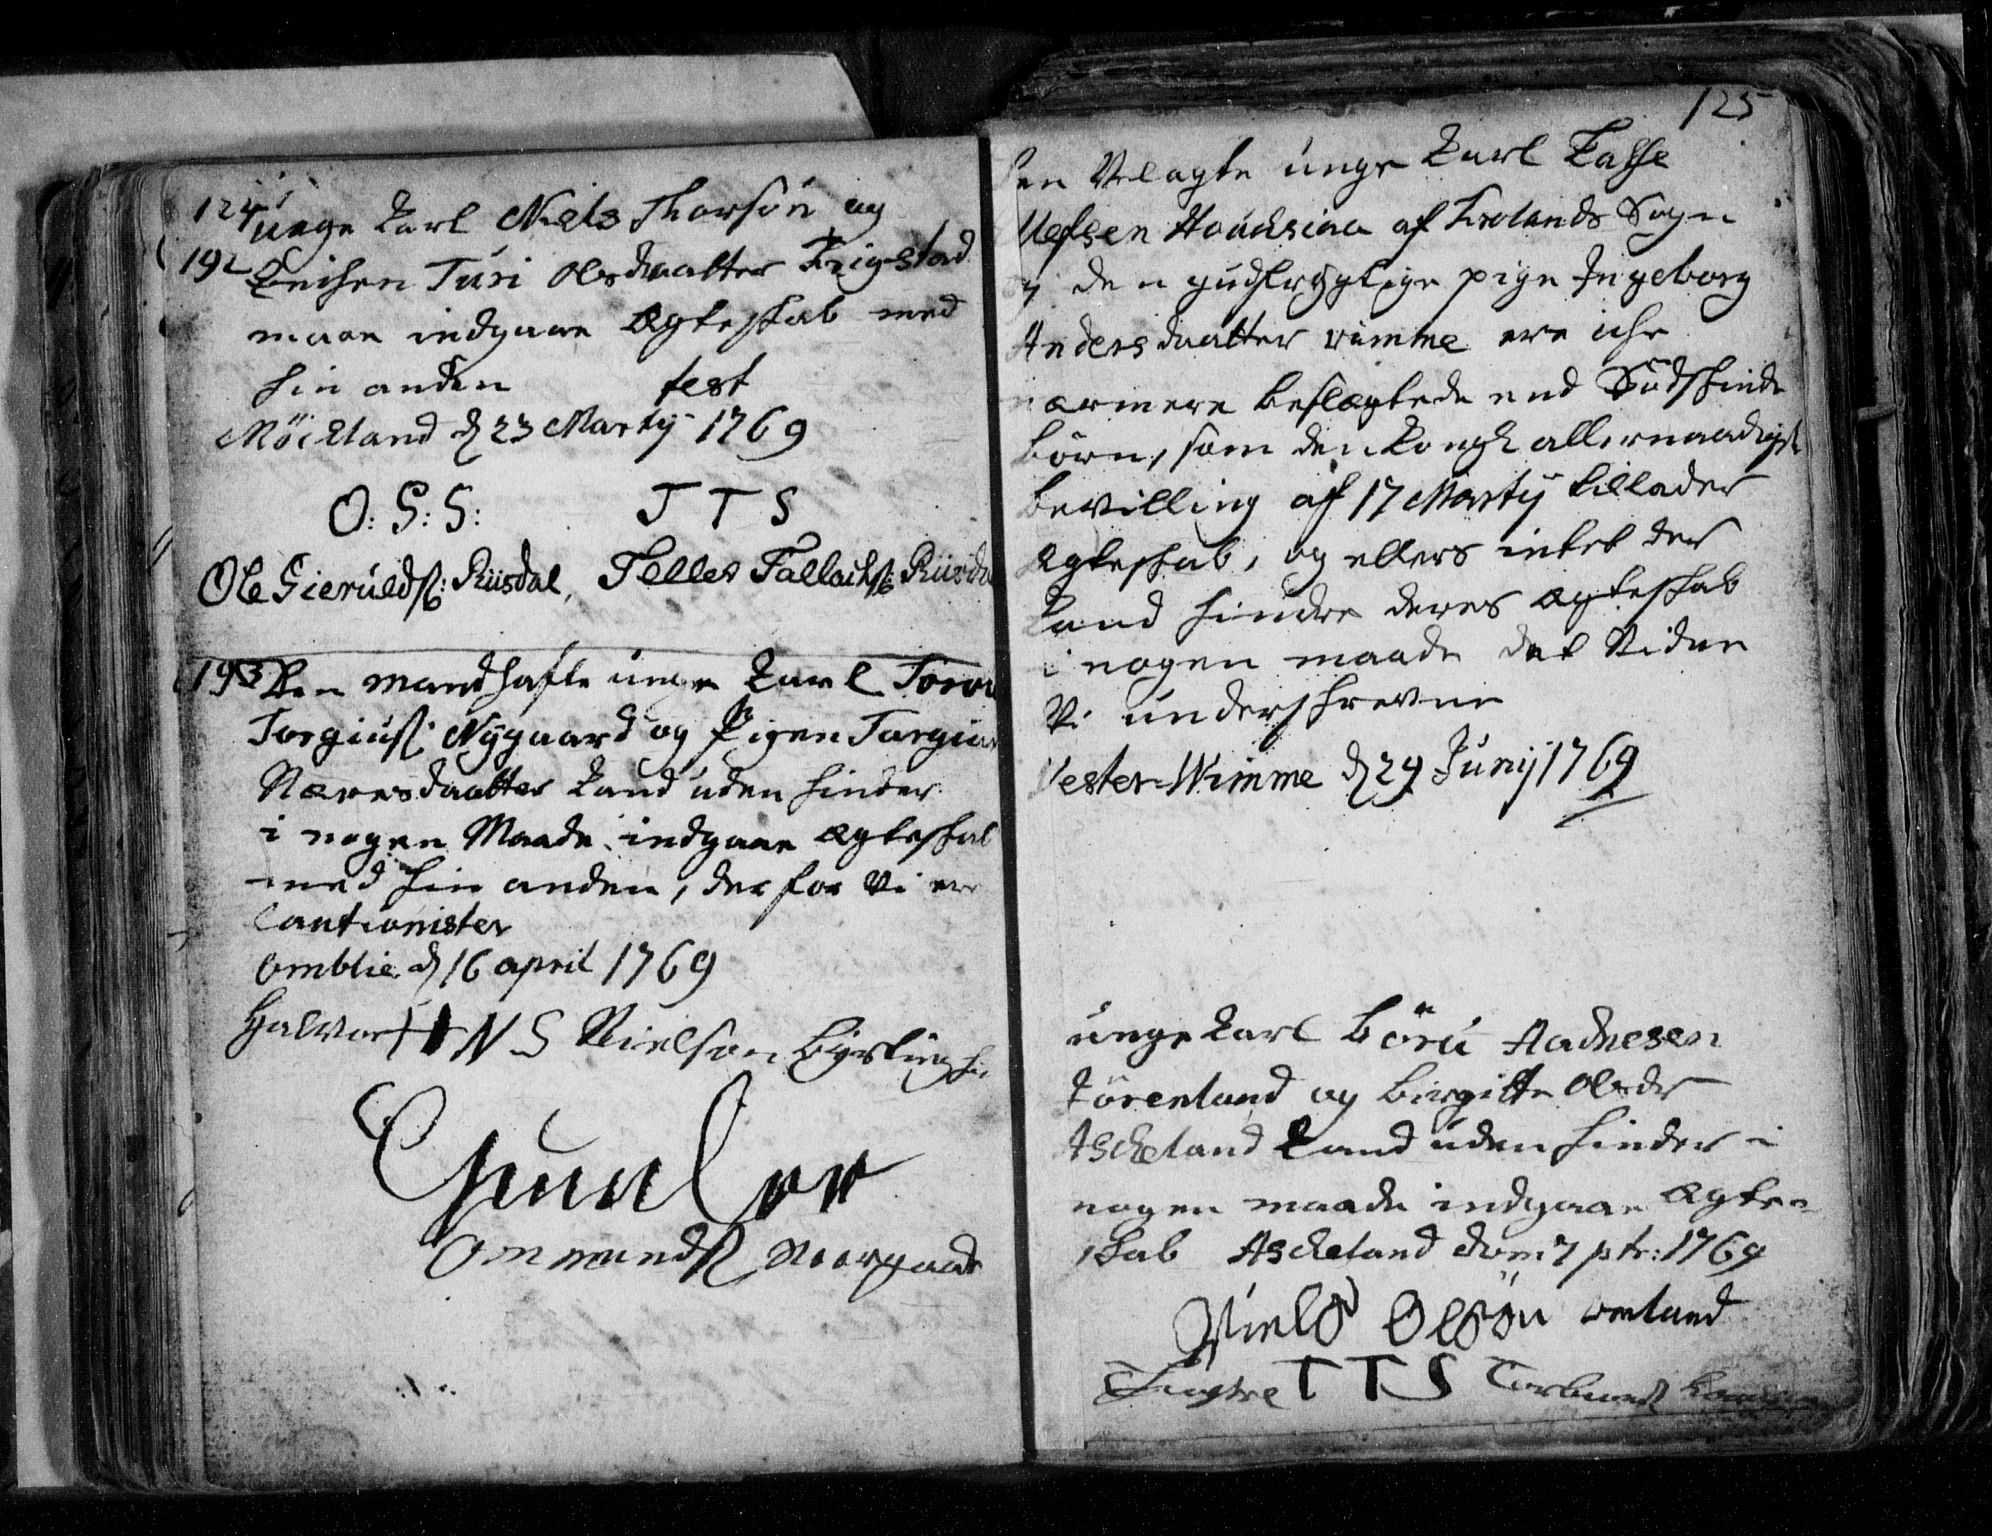 124
unge Karl Niels Thorsøn og
192 Enchen Turi Olsdaatter Frigstad
maae indgaae Ægteskab med
hin anden test
Möckland d 23 Martij 1769
O: G: S: T T S
Ole Gieruldsß: Riisdal, Tellev Fallachsß: Riisda
193 Den Mandhafte unge Karl
Torgiusß: Nÿgaard og Pigen Targier
Næresdaatter kand uden hinder
i nogen Maade indgaae Ægteskab
med hin anden, derfor vi er
Cautionister
Omblie d 16 april 1769
Halvor H N S Nielson
Gunlov
Ommundsß
125
den Velagte unge Karl Tasse
Ulefsen af Frolands Sogn
og den gudfrÿgtige pige Ingeborg
Andersdaatter vimme ere iche
nærmere beslægtede end Sødskinde
börn, som den Kongl allernaadigst
bevilling af 17 Martij tillader
Ægteskab, og ellers intet der
kand hindre deres Ægteskab
i nogen maade det Vidner
Vi underskrevne
Vester-Wimme d 29 Junij 1769
unge Karl Böru Aadnesen
Törenland og Birgitte Olsdr
Ascheland kand uden hinder i
nogen maade indgaae Ægte=
skab Ascheland dom 7 p tr: 1769
Niels Olsøn omland
T T S